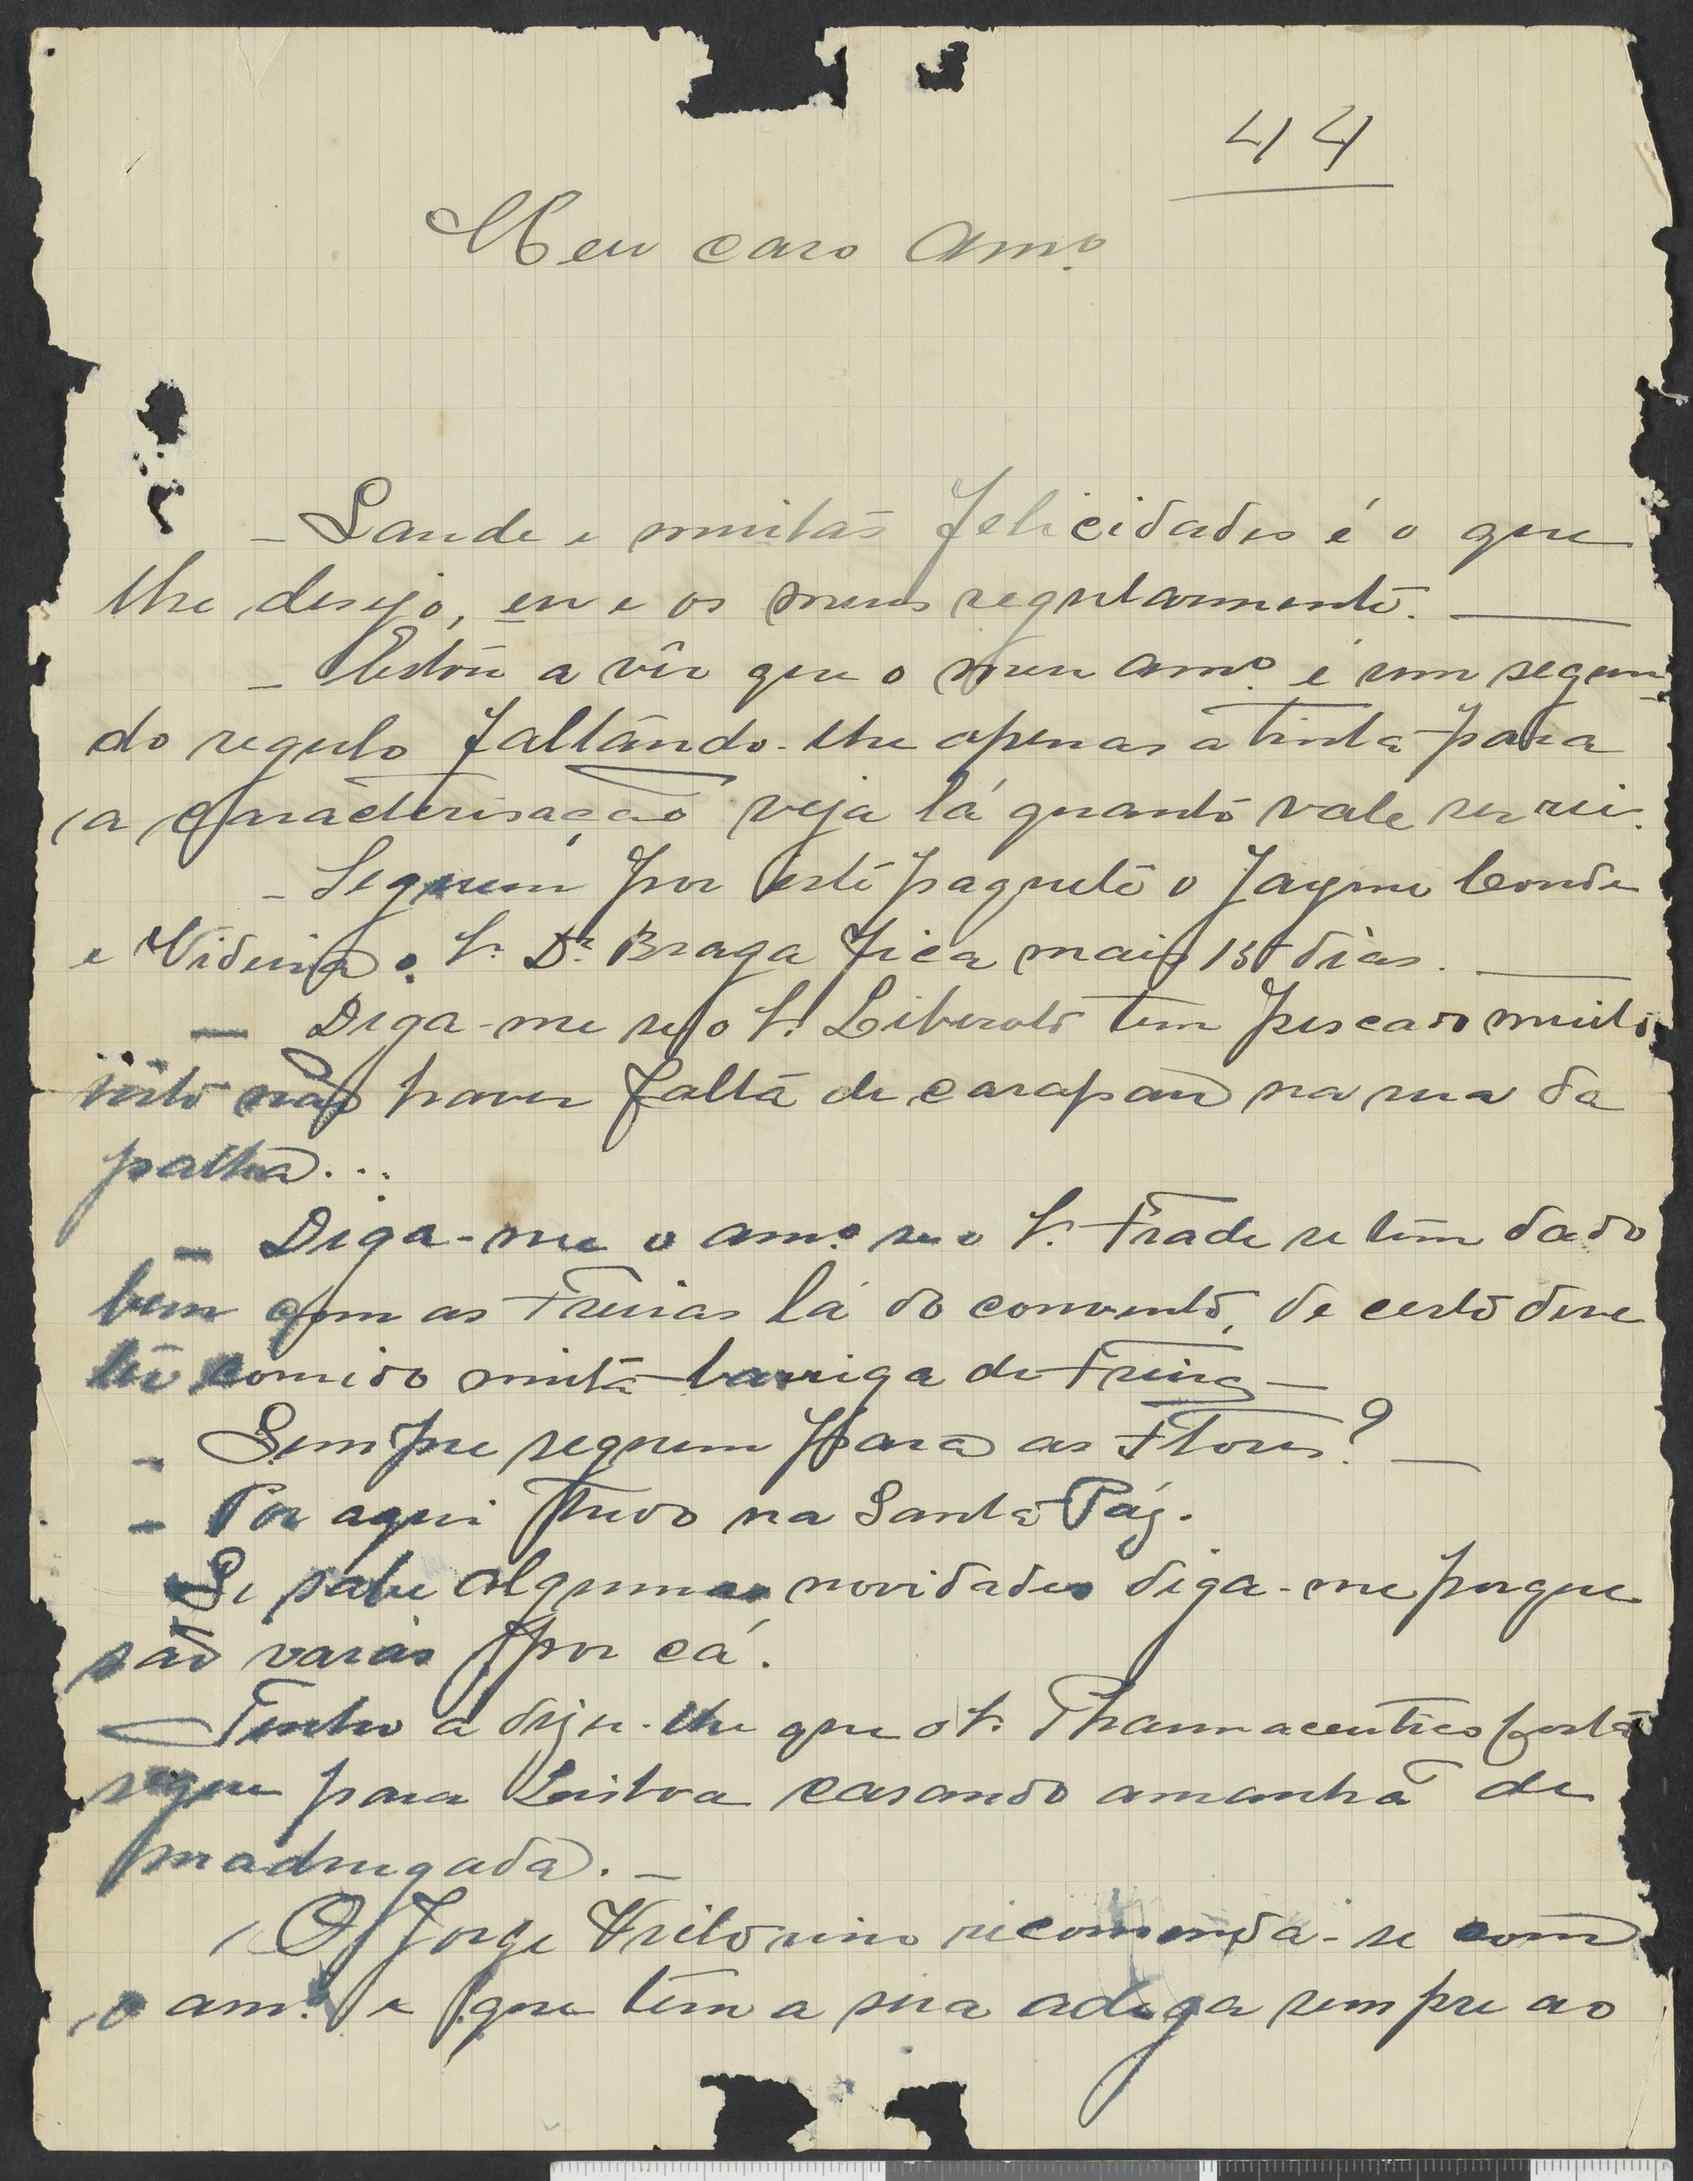 44
Meu caro Amº
- Saude e muitas felicidades é o que
lhe desejo, eu e os meus regularmente.
- Estou a vêr que o meu amº é um segun-
do regulo faltando-lhe apenas a tinta para
a caracterisação veja lá quanto vale ser rei.
- Seguem por este paquete o Jayme Conde
e Videira o Sr. Dr. Braga fica mais 15 dias.
- Diga-me se o Sr. Liberato tem pescado muito
visto não haver falta de carapau na rua da
palha...
- Diga-me o amº se o Sr. Frade se tem dado
bem com as Freiras lá do convento, de certo deve
ter comido muita barriga de Freira -
- Sempre seguem para as Flores? -
- Por aqui tudo na Santa Páz.
Se sabe algumas novidades diga-me porque
são raras por cá.
- Tenho a dizer-lhe que o Sr. Pharmaceutico Costa
segue para Lisboa casando amanhã de
madrugada. -
O Jorge Vitorino recomenda-se com
o amº e que tem a sua adega sempre ao